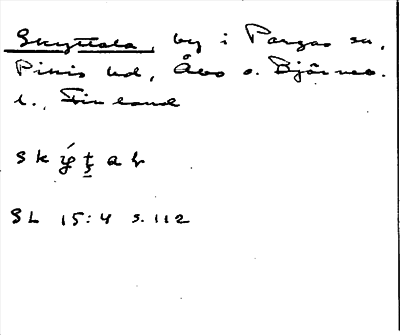 Skyttala, by i Pargas sn,
Pikis hd, Åbo o. Björneb.
l., Finland
SL 15:4 s. 112